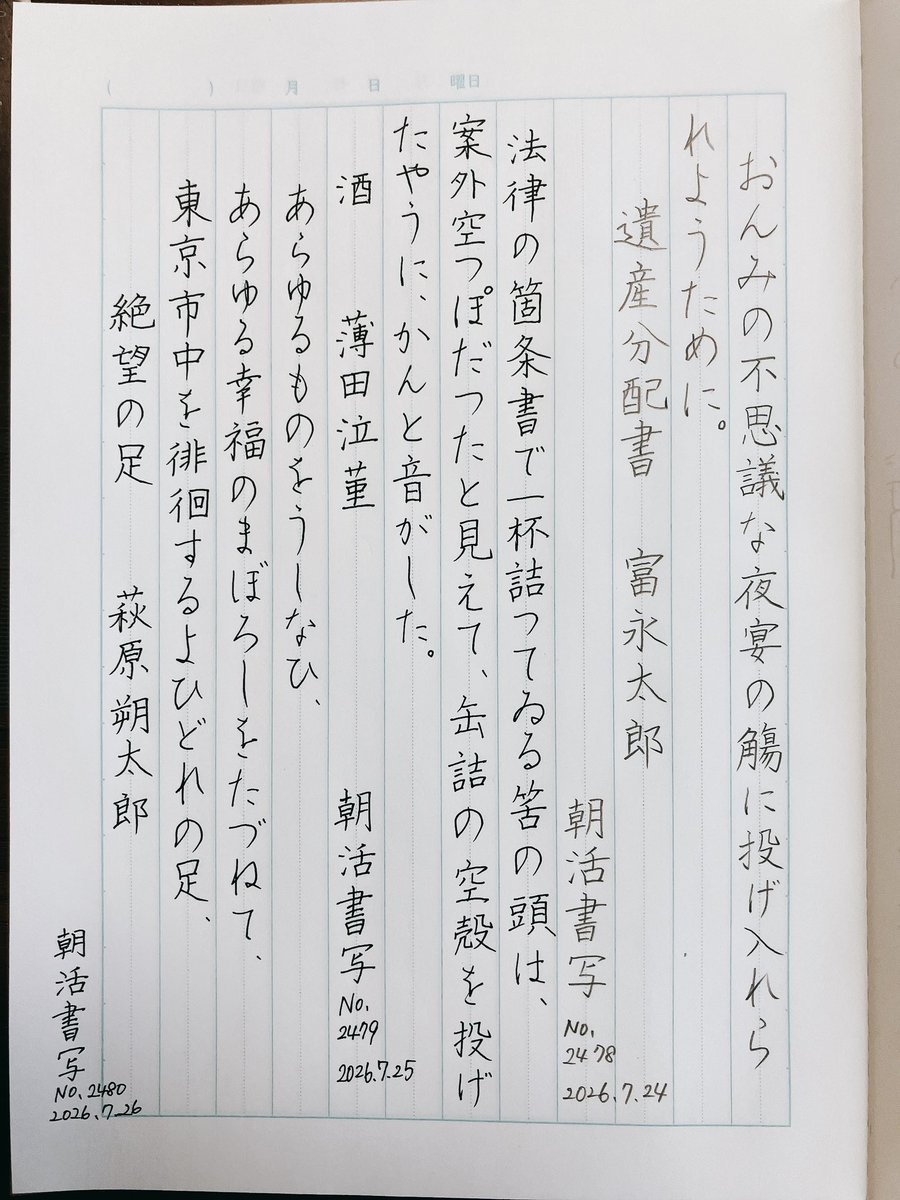 ( ) 月 日 曜日
おんみの不思議な夜宴の觴に投げ入れら
れようために。
遺産分配書 富永太郎
朝活書写 No.2478 2026.7.24
法律の箇条書で一杯詰つてゐる筈の頭は、
案外空つぽだつたと見えて、缶詰の空殻を投げ
たやうに、かんと音がした。
酒 薄田泣菫 朝活書写 No.2479 2026.7.25
あらゆるものをうしなひ、
あらゆる幸福のまぼろしをたづねて、
東京市中を徘徊するよひどれの足、
絶望の足 萩原朔太郎
朝活書写 No.2480 2026.7.26